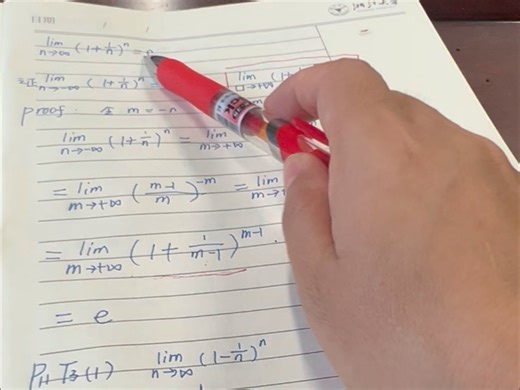 日期
lim n→∞ (1+1/n)^n = e
lim n→-∞ (1+1/n)^n = lim □→+∞ (1+
proof: 令 m = -n
lim n→-∞ (1+1/n)^n = lim m→+∞
= lim m→+∞ ((m-1)/m)^-m = lim m→+∞
= lim m→+∞ (1 + 1/(m-1))^m-1 ·
= e
P11 T3(1) lim n→∞ (1-1/n)^n